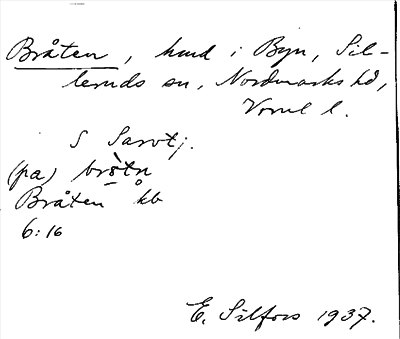 Bråten, hmd i Byn, Sil-
leruds sn, Nordmarks hd,
Verml l.
S Sarvtj.
(pa) bròtn
Bråten kb
6:16
E. Silfors 1937.